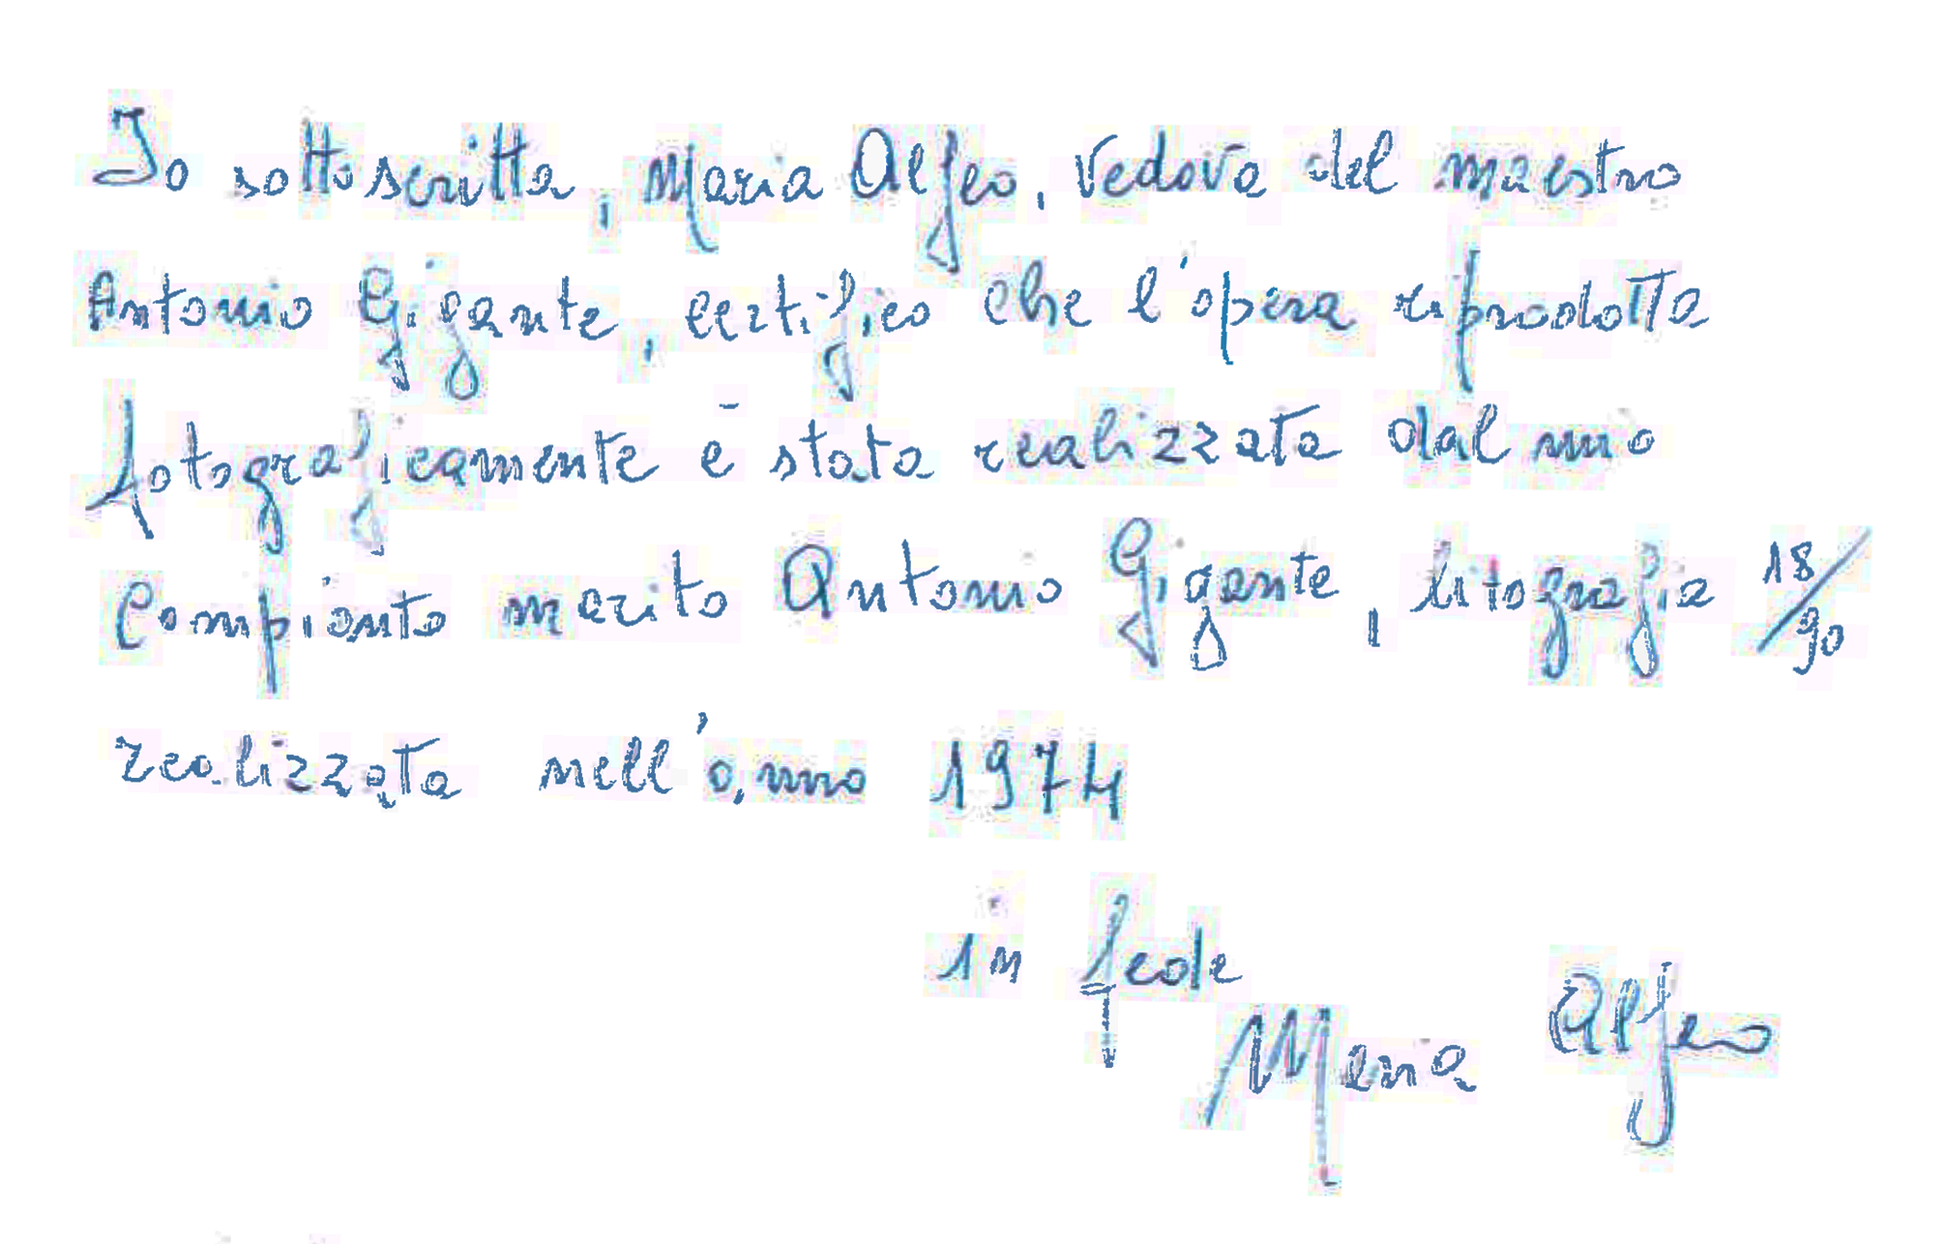 Io sottoscritta, Maria Alfeo, vedova del maestro
Antonio Gigante, certifico che l'opera riprodotta
fotograficamente è stata realizzata dal mio
compianto marito Antonio Gigante, litografia 18/90
realizzata nell'anno 1974
in fede
Maria Alfeo